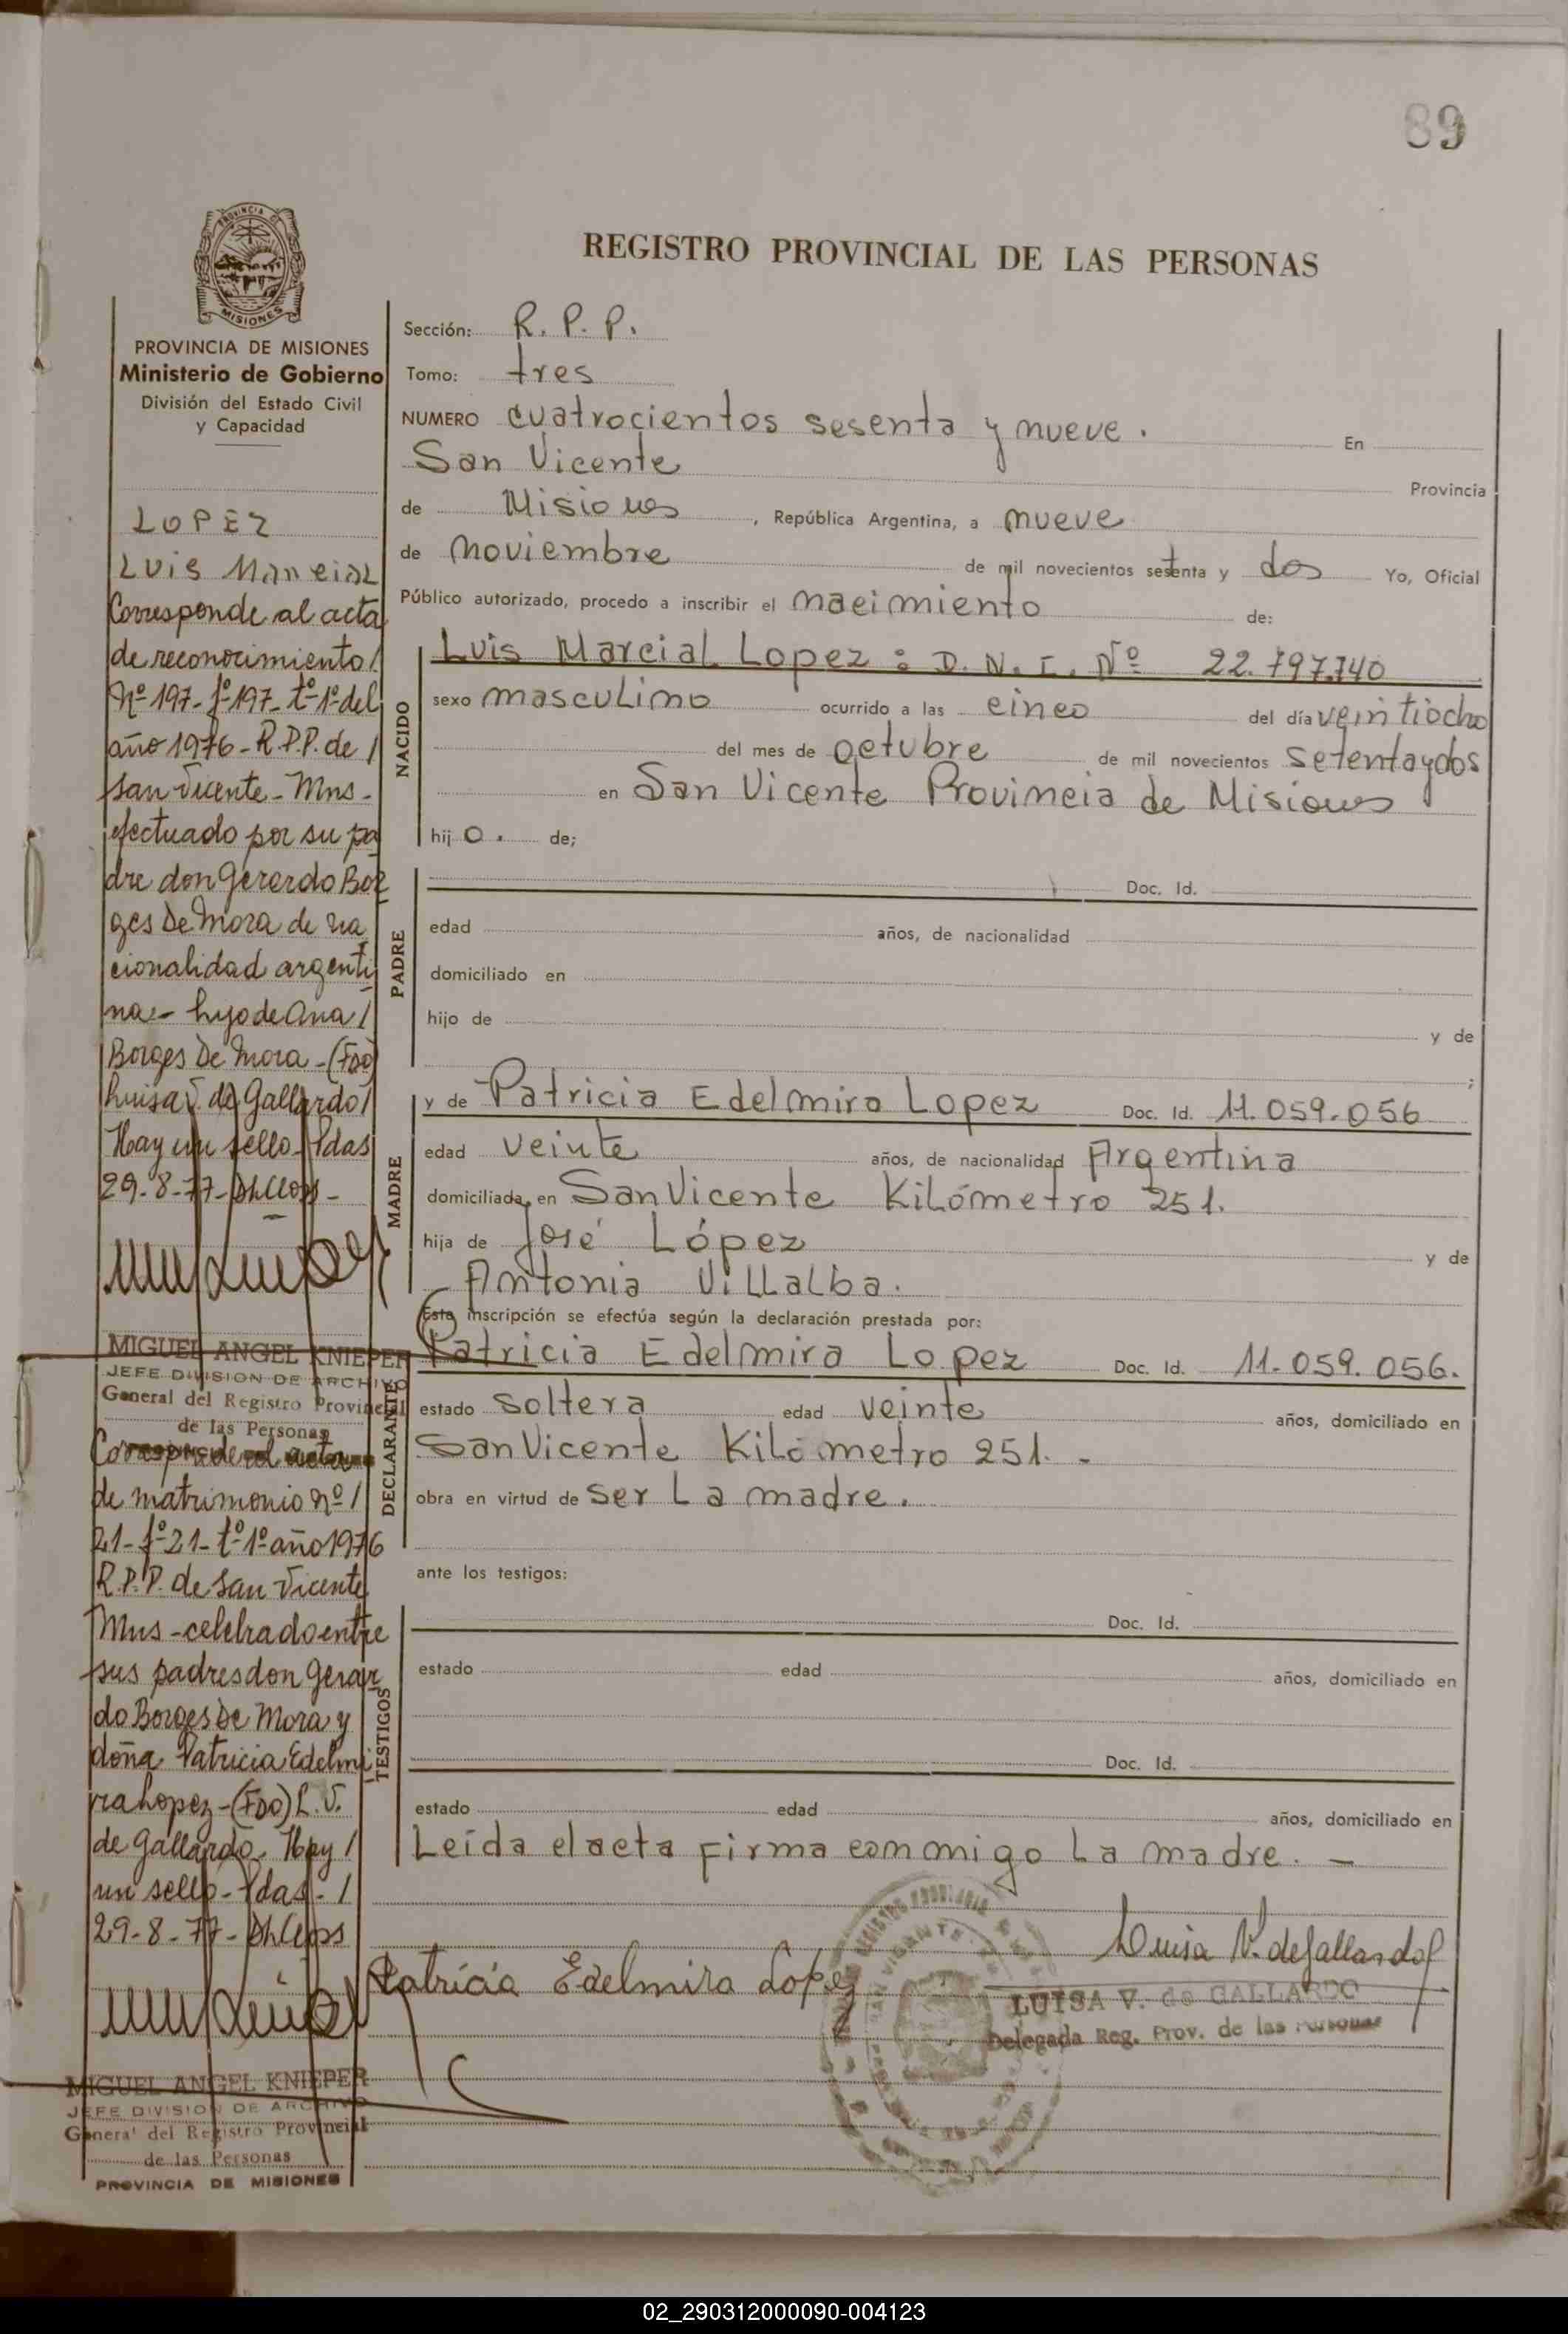 89
PROVINCIA DE
MISIONES
REGISTRO PROVINCIAL DE LAS PERSONAS
PROVINCIA DE MISIONES
Ministerio de Gobierno
División del Estado Civil
y Capacidad
LOPEZ
Luis Marcial
Corresponde al acta
de reconocimiento/
Nº 197-fº197-tº-1º del
año 1976-R.P.P. de /
San Vicente-Mns-
efectuado por su pa
dre don Gerardo Bor
ges De Mora de na
cionalidad argenti
na- hijo de Ana/
Borges De Mora-(Fdo)
Luisa V. de Gallardo/
Hay un sello-Pdas
29-8-77-
MIGUEL ANGEL KNIEPER
JEFE DIVISION DE ARCHIVO
General del Registro Provincial
de las Personas
Corresponde al acta
de matrimonio nº/
21-fº21-tº-1º año 1976
R.P.P. de San Vicente
Mns-celebrado entre
sus padres don Gerar
do Borges De Mora y
doña Patricia Edelmi
ra Lopez-(Fdo) L.V.
de Gallardo. Hay/
un sello-Pdas-/
29-8-77-
MIGUEL ANGEL KNIEPER
JEFE DIVISION DE ARCHIVO
General del Registro Provincial
de las Personas
PROVINCIA DE MISIONES
Sección: R.P.P.
Tomo: tres
NUMERO cuatrocientos sesenta y nueve. En
San Vicente Provincia
de Misiones, República Argentina, a nueve
de noviembre de mil novecientos setenta y dos Yo, Oficial
Público autorizado, procedo a inscribir el nacimiento de:
NACIDO
Luis Marcial Lopez: D.N.I. Nº 22.797.740
sexo masculino ocurrido a las cinco del día veintiocho
del mes de octubre de mil novecientos setenta y dos
en San Vicente Provincia de Misiones
hij o. de;
PADRE
Doc. Id.
edad años, de nacionalidad
domiciliado en
hijo de y de
;
MADRE
y de Patricia Edelmira Lopez Doc. Id. 11.059.056
edad veinte años, de nacionalidad Argentina
domiciliada en San Vicente Kilómetro 251.
hija de José López y de
Antonia Villalba.
Esta inscripción se efectúa según la declaración prestada por:
DECLARANTE
Patricia Edelmira Lopez Doc. Id. 11.059.056.
estado soltera edad veinte años, domiciliado en
San Vicente Kilómetro 251. -
obra en virtud de ser La madre.
ante los testigos:
TESTIGOS
Doc. Id.
estado edad años, domiciliado en
Doc. Id.
estado edad años, domiciliado en
Leída el acta firma conmigo La madre. -
Patricia Edelmira Lopez
Luisa V. de Gallardo
LUISA V. de GALLARDO
Delegada Reg. Prov. de las Personas
02_290312000090-004123